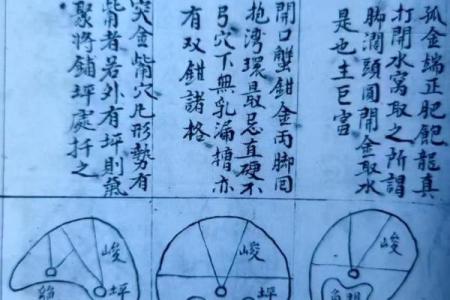 孤金端正肥飽龍真
打開水窩取之所謂
脚濶頭圓開金取水
是也主巨富
開口蟹鉗金两脚囘
抱湾環最忌直硬不
弓穴下無乳漏槽亦
有双鉗諸格
突金觜穴凡形勢有
觜者若外有坪則氣
聚將鋪坪處扦之
峻
峻
坪
峻
坪